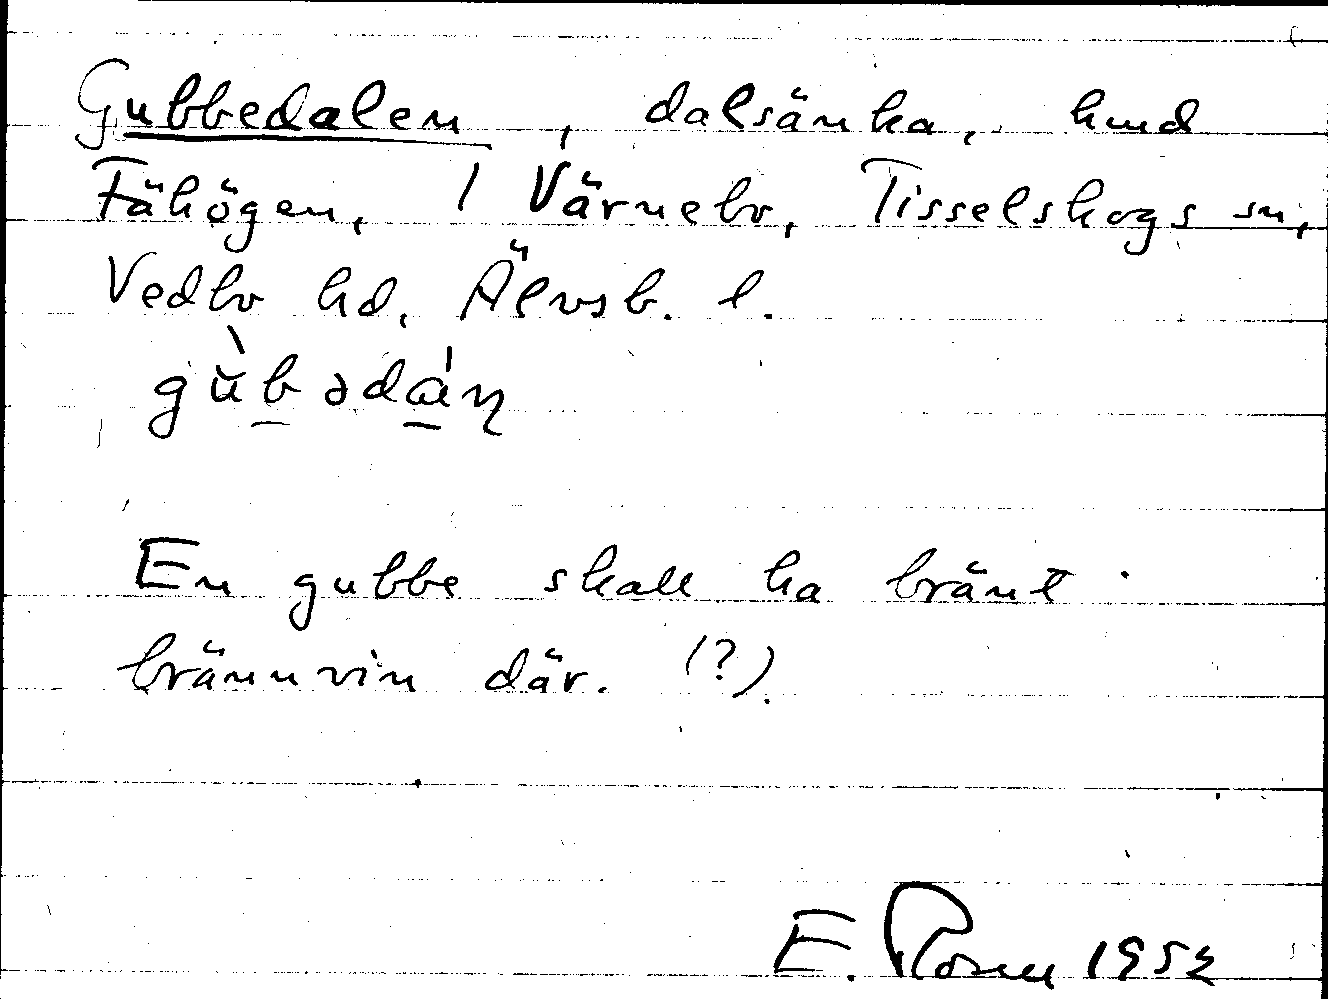 Gubbedalen, dalsänka, hmd
Fähögen, 1 Värnebo, Tisselskogs sn,
Vedbo hd, Älvsb. l.
gùbədáɳ
En gubbe skall ha bränt
brännvin där. (?)
E. 1952